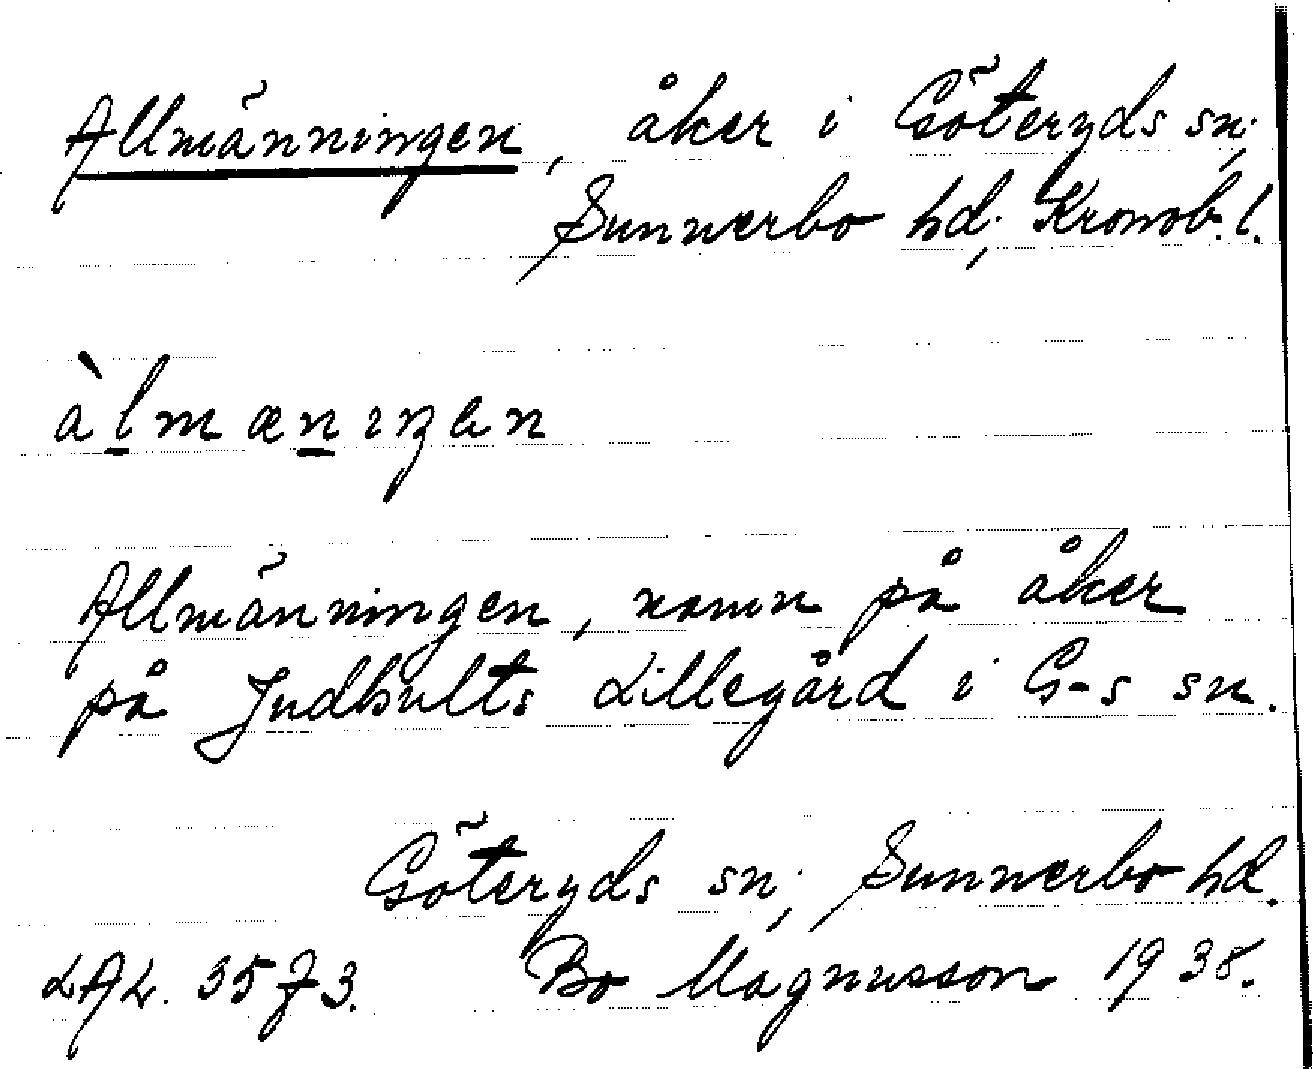 Allmänningen, åker i Göteryds sn.,
Sunnerbo hd., Kronob. l.
àlmæniŋen
Allmänningen, namn på åker
på Judhults Lillegård i G-s sn.
Göteryds sn., Sunnerbo hd.
LAL. 3573. Bo Magnusson 1938.